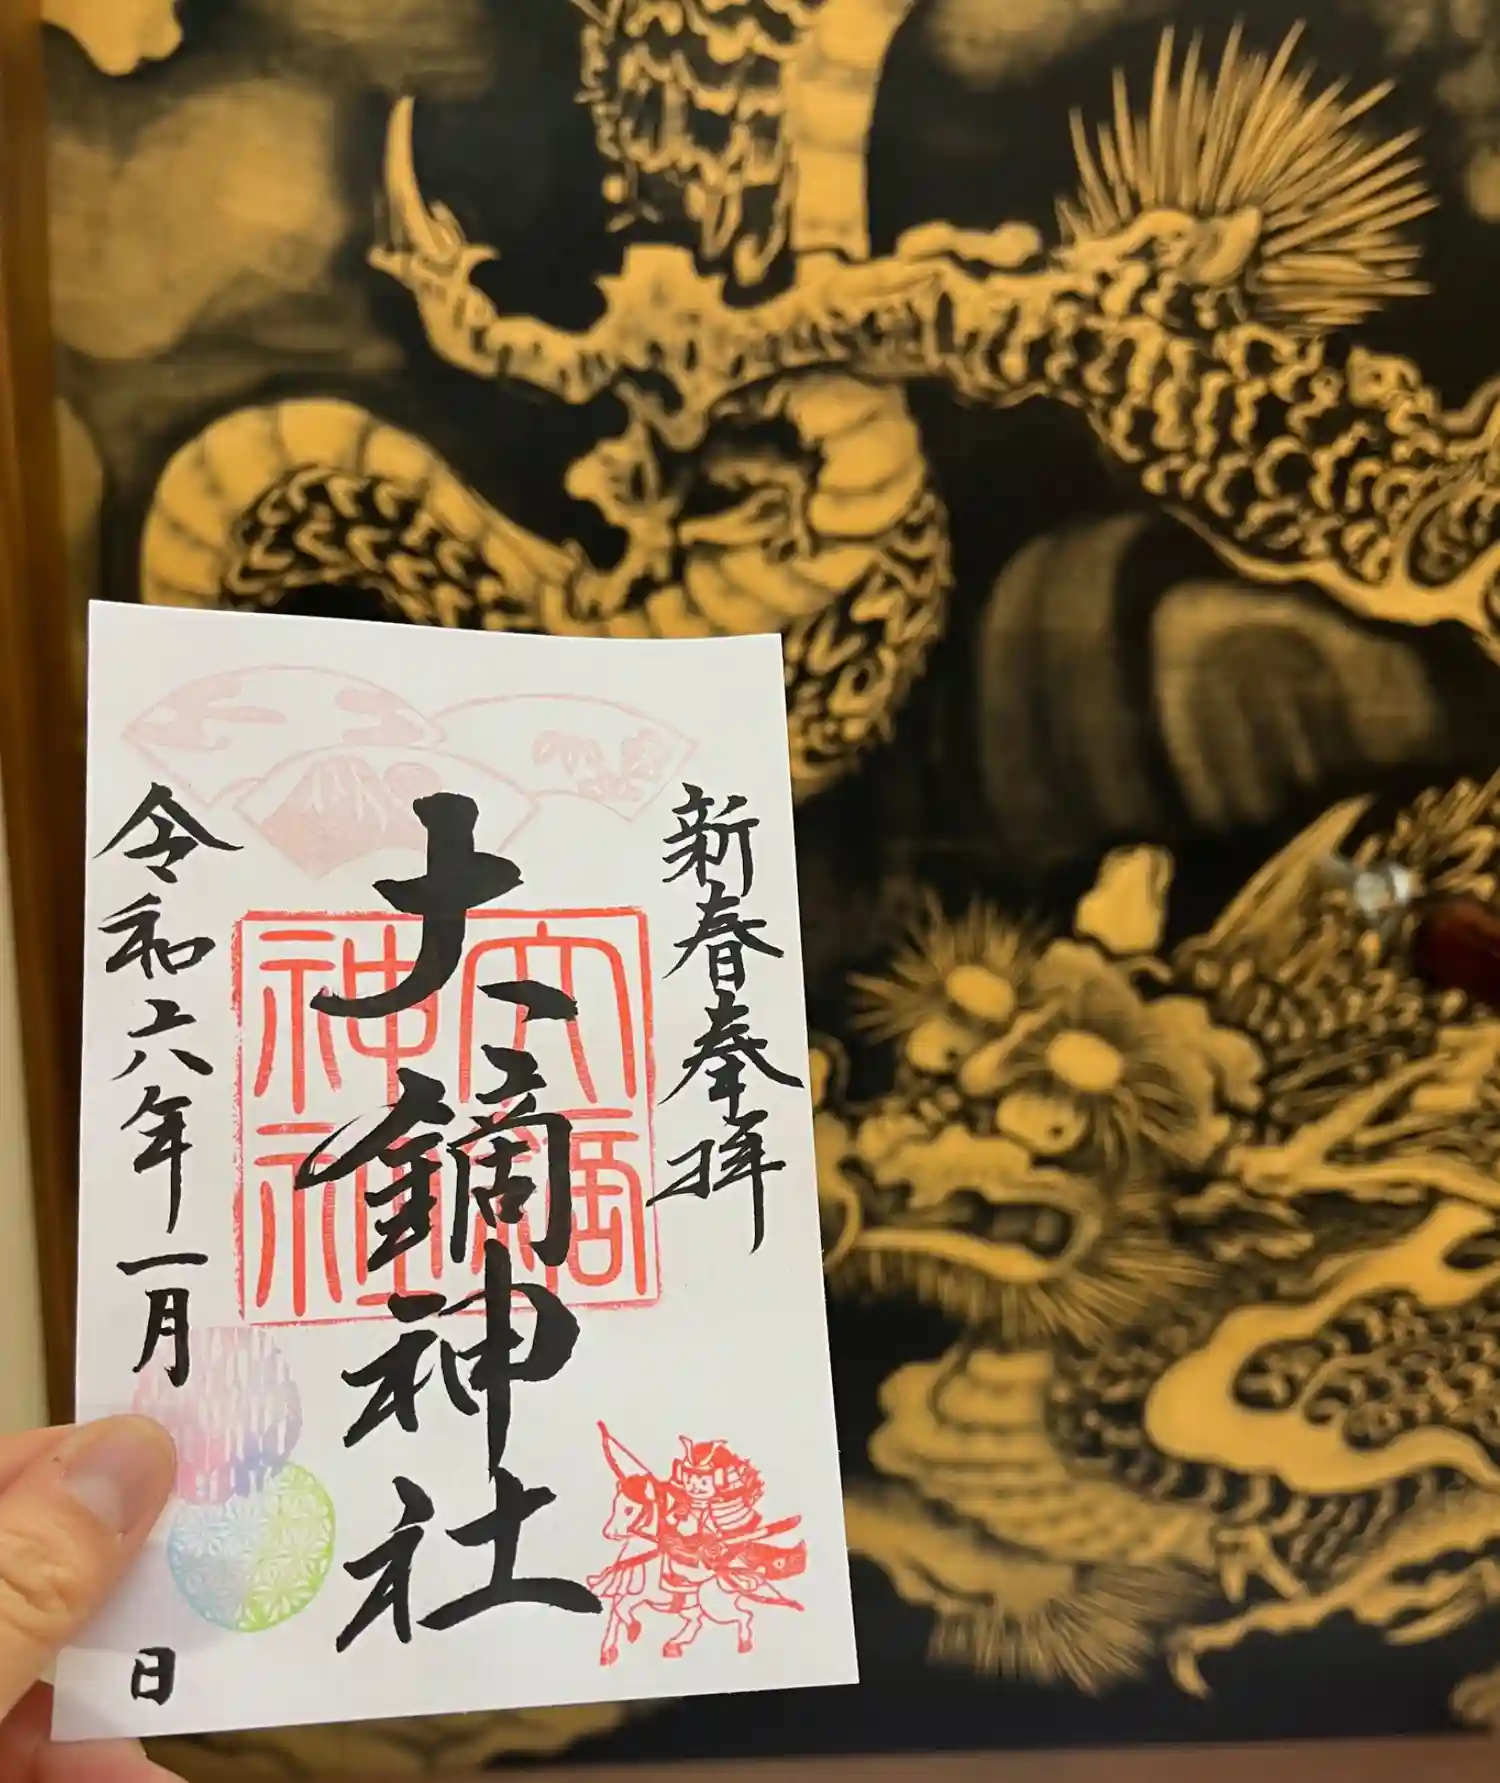 新春奉拝
大鏑神社
大鏑
神社
令和六年一月 日